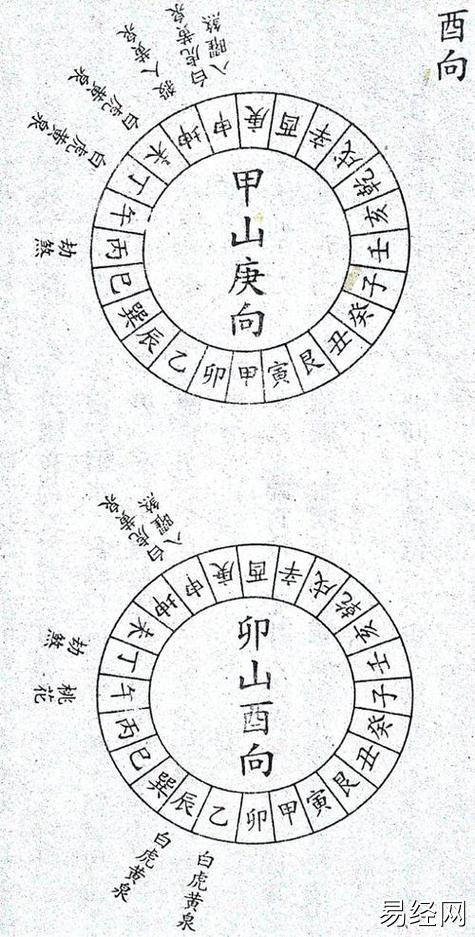 酉向
八曜煞
白虎黄泉
殺人黄泉
白虎黄泉
白虎黄泉
劫煞
甲山庚向
庚
酉
辛
戌
乾
亥
壬
子
癸
丑
艮
寅
甲
卯
乙
辰
巽
巳
丙
午
丁
未
坤
申
八曜煞
白虎黄泉
劫煞
桃花
卯山酉向
酉
辛
戌
乾
亥
壬
子
癸
丑
艮
寅
甲
卯
乙
辰
巽
巳
丙
午
丁
未
坤
申
庚
白虎黄泉
白虎黄泉
易经网